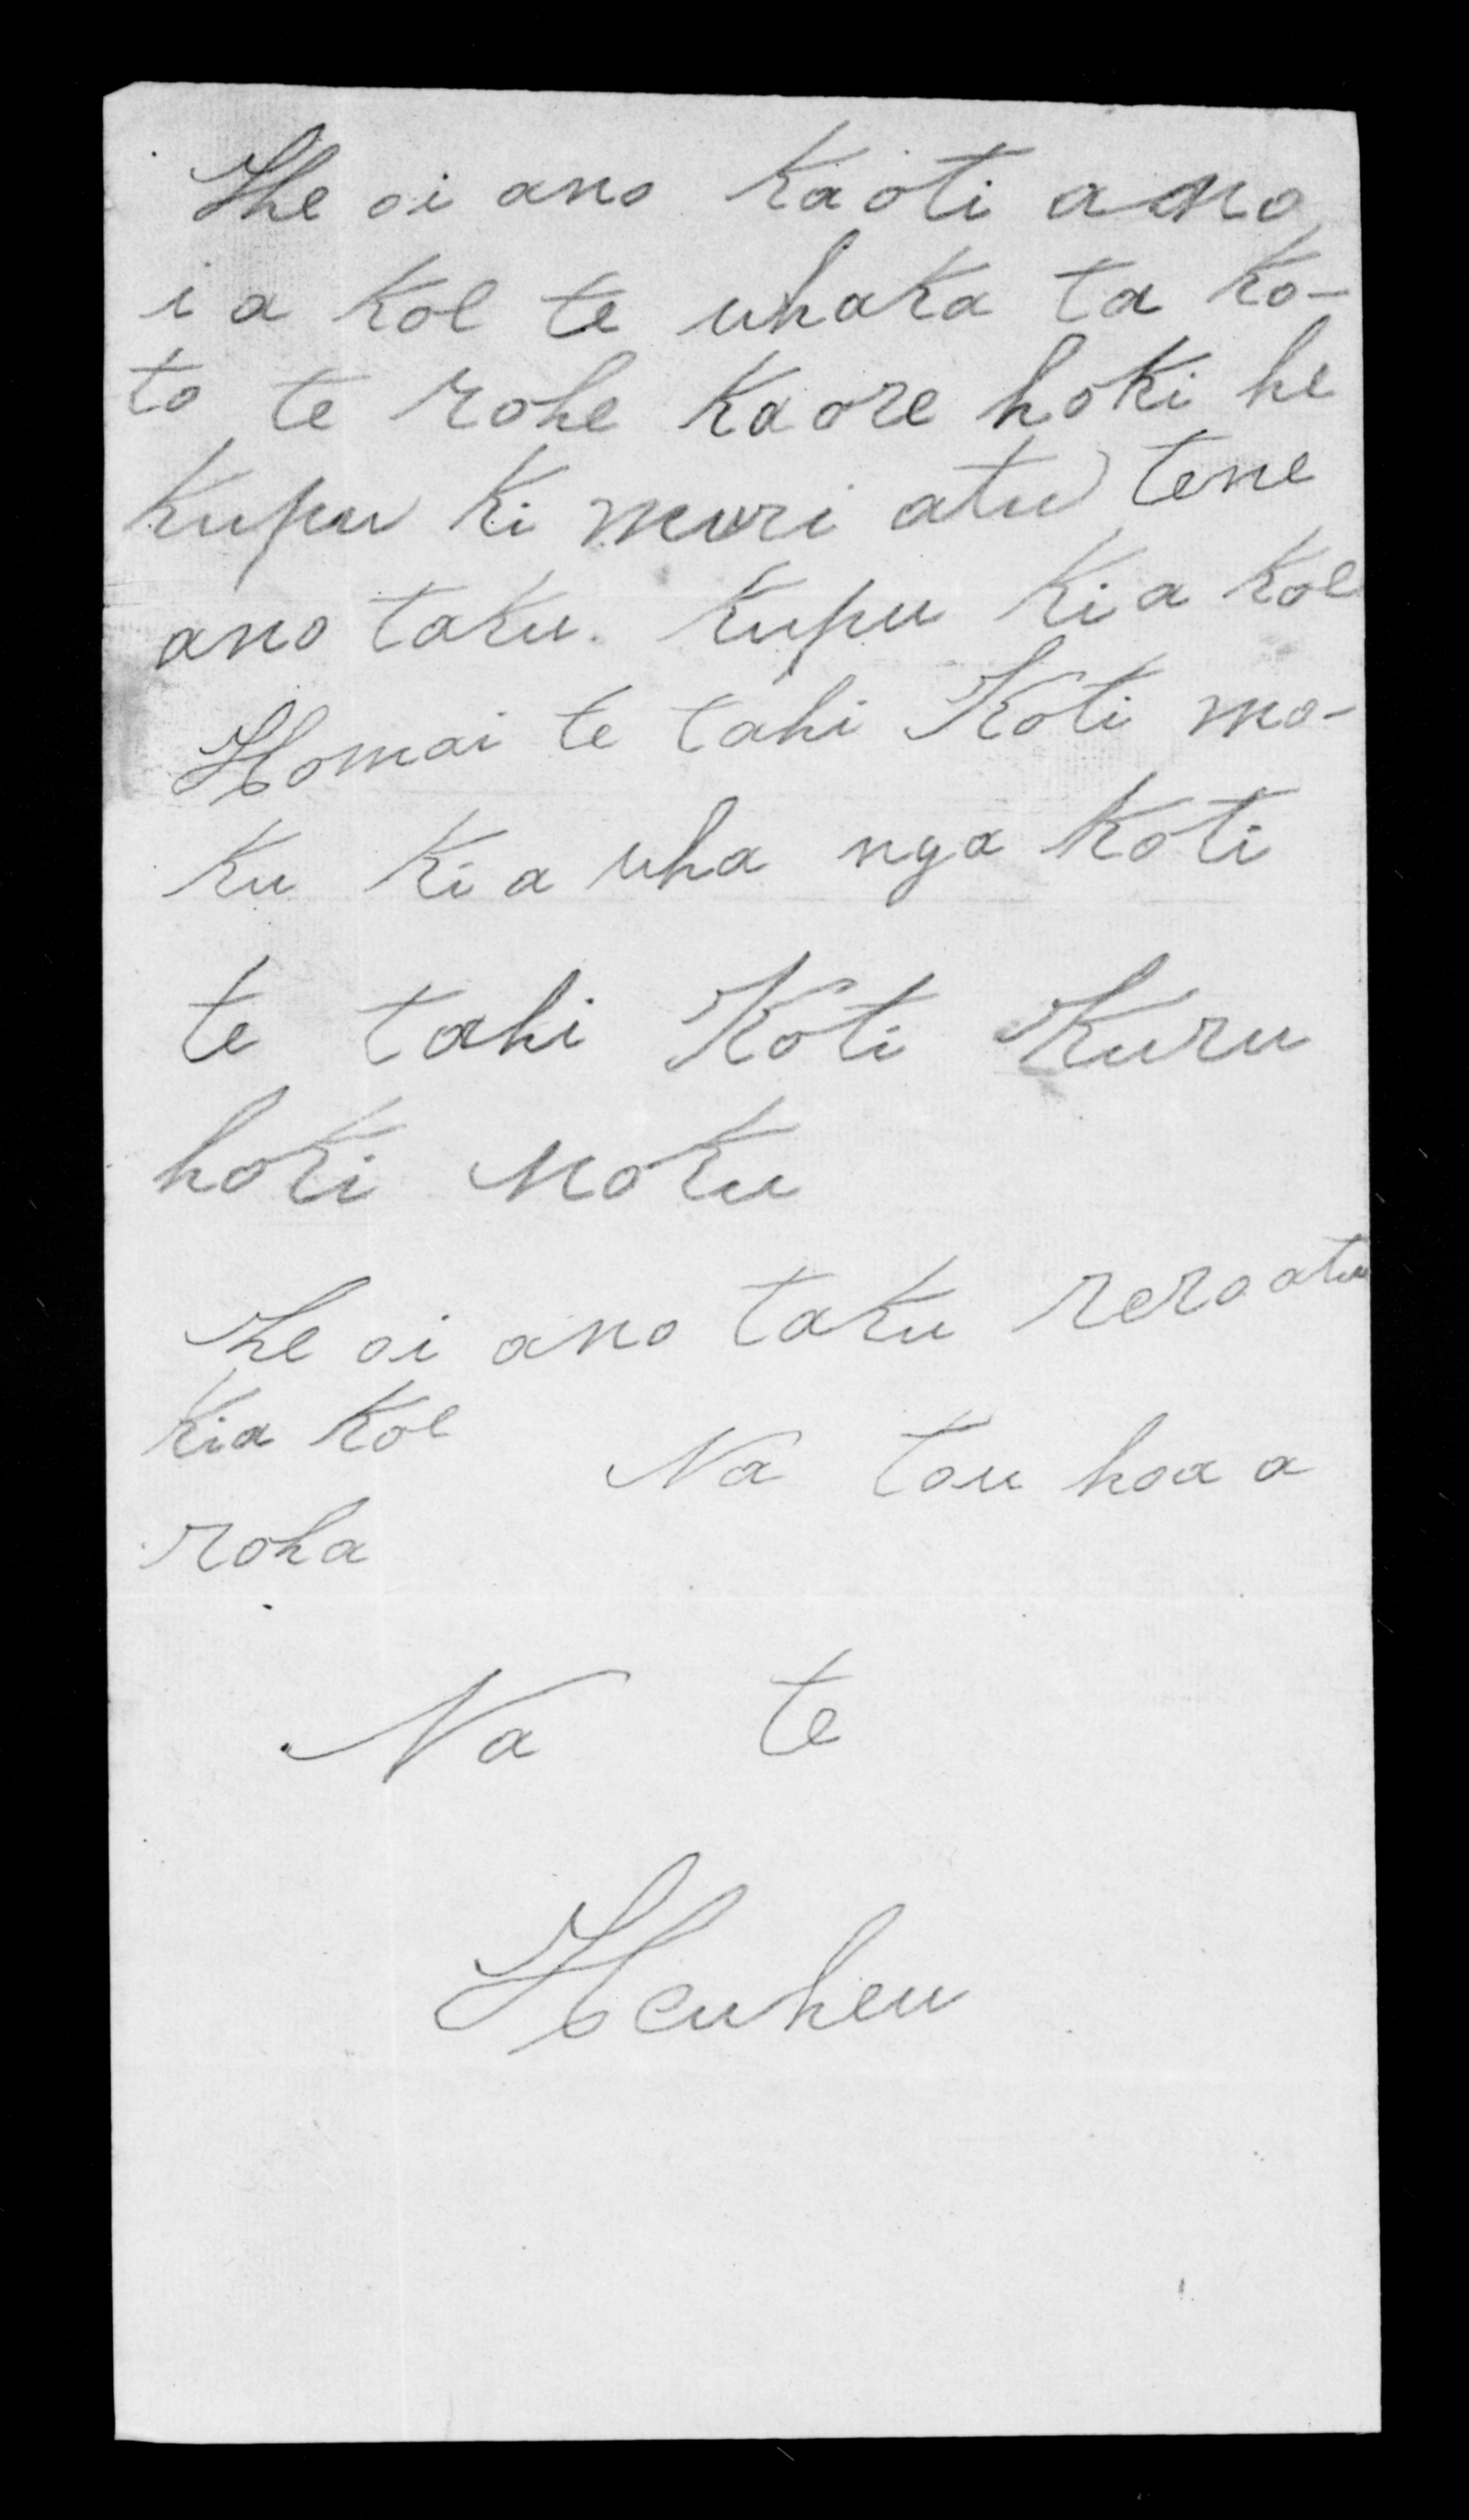 The oi ano Kaoti ano
i a Koe te whaka ta ko-
to te rohe Kaore hoki he
Kupu Ki muri atu tene
ano taku Kupu Ki a Koe
Homai te tahi Koti mo-
Ku Ki a wha nga Koti
te tahi Koti Kuru
hoki noku
he oi ano taku reroatu
Kia Koe Na tou hoa a
roha
Na te
Heuheu